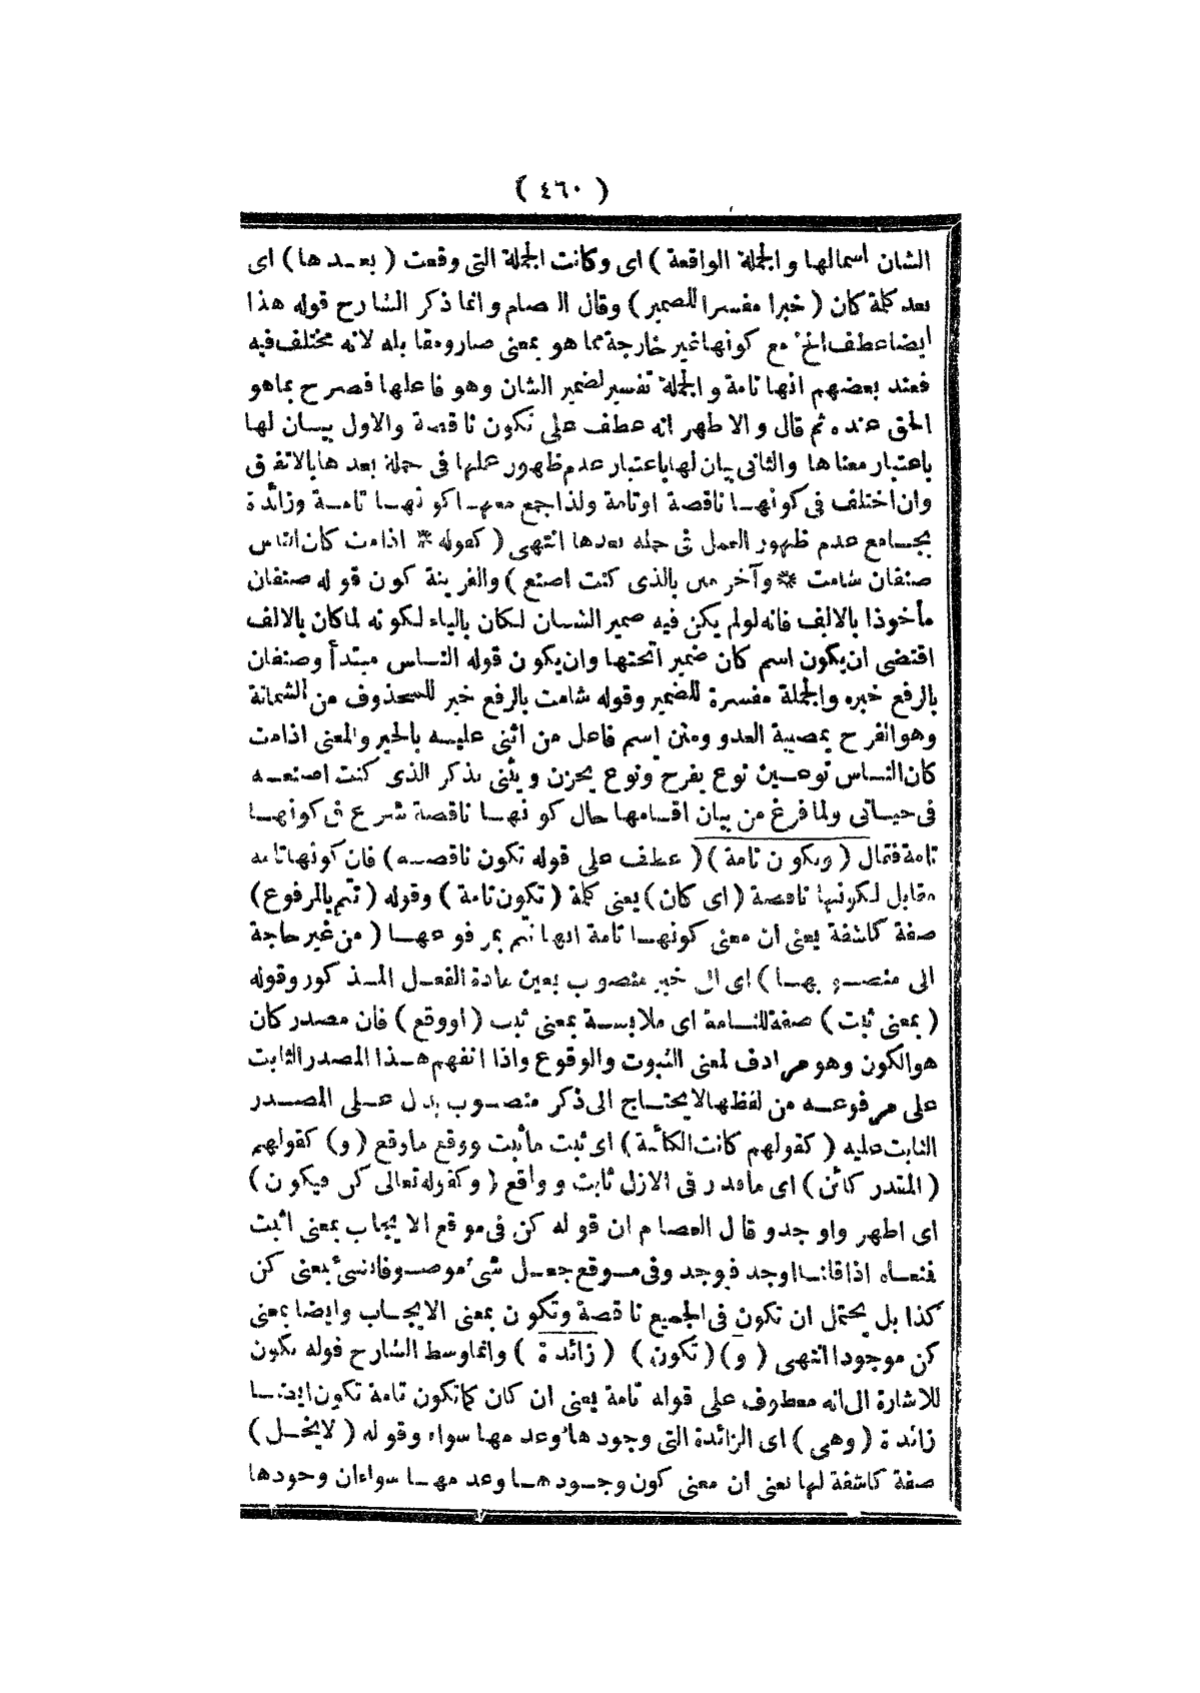 ( ٤٦٠ )
الشان اسمالها والجملة الواقعة ) اى وكانت الجملة التى وقعت ( بعدها ) اى
بعد كلمة كان ( خبرا مفسرا للضمير ) وقال العصام وانما ذكر الشارح قوله هذا
ايضا عطف الخ مع كونها غير خارجة مما هو بمعنى صار ومقابله لانه مختلف فيه
فعند بعضهم انها تامة والجملة تفسير لضمير الشان وهو فاعلها فصرح بماهو
الحق عنده ثم قال والاظهر انه عطف على تكون ناقصة والاول بيان لها
باعتبار معناها والثانى بيان لها باعتبار عدم ظهور عملها فى جملة بعدها بالاتفاق
وان اختلف فى كونها ناقصة اوتامة ولذا جمع معها كونها تامة وزائدة
بجامع عدم ظهور العمل فى جملة بعدها انتهى ( كقوله * اذامت كان الناس
صنفان شامت * وآخر مثن بالذى كنت اصنع ) والقرينة كون قوله صنفان
مأخوذا بالالف فانه لولم يكن فيه ضمير الشان لكان بالياء لكونه لماكان بالالف
اقتضى ان يكون اسم كان ضمير اتحتها وان يكون قوله الناس مبتدأ وصنفان
بالرفع خبره والجملة مفسرة للضمير وقوله شامت بالرفع خبر للمحذوف من الشماتة
وهو الفرح بمصيبة العدو ومثن اسم فاعل من اثنى عليه بالخير والمعنى اذامت
كان الناس نوعين نوع يفرح ونوع يحزن ويثنى بذكر الذى كنت اصنعه
فى حياتى ولما فرغ من بيان اقسامها حال كونها ناقصة شرع فى كونها
تامة فقال ( وتكون تامة ) ( عطف على قوله تكون ناقصة ) فان كونها تامة
مقابل لكونها ناقصة ( اى كان ) يعنى كلمة ( تكون تامة ) وقوله ( تتم بالمرفوع )
صفة كاشفة يعنى ان معنى كونها تامة انها تتم بمرفوعها ( من غير حاجة
الى منصوبها ) اى الى خبر منصوب بعين مادة الفعل المذكور وقوله
( بمعنى ثبت ) صفة للتامة اى ملابسة بمعنى ثبت ( اووقع ) فان مصدر كان
هو الكون وهو مرادف لمعنى الثبوت والوقوع واذا انفهم هذا المصدر الثابت
على مرفوعه من لفظها لايحتاج الى ذكر منصوب يدل على المصدر
الثابت عليه ( كقولهم كانت الكائنة ) اى ثبت ماثبت ووقع ماوقع ( و ) كقولهم
( المقدر كائن ) اى ماقدر فى الازل ثابت وواقع ( وكقوله تعالى كن فيكون )
اى اظهر واوجد وقال العصام ان قوله كن فى موقع الايجاب بمعنى اثبت
فمعناه اذا قلنا اوجد فيوجد وفى موقع جعل شئ موصوفا بشئ بمعنى كن
كذا بل يحتمل ان تكون فى الجميع ناقصة وتكون بمعنى الايجاب وايضا بمعنى
كن موجودا انتهى ( و ) ( تكون ) ( زائدة ) وانماوسط الشارح قوله تكون
للاشارة الى انه معطوف على قوله تامة يعنى ان كان كماتكون تامة تكون ايضا
زائدة ( وهى ) اى الزائدة التى وجودها وعدمها سواء وقوله ( لايخل )
صفة كاشفة لها يعنى ان معنى كون وجودها وعدمها سواءان وجودها